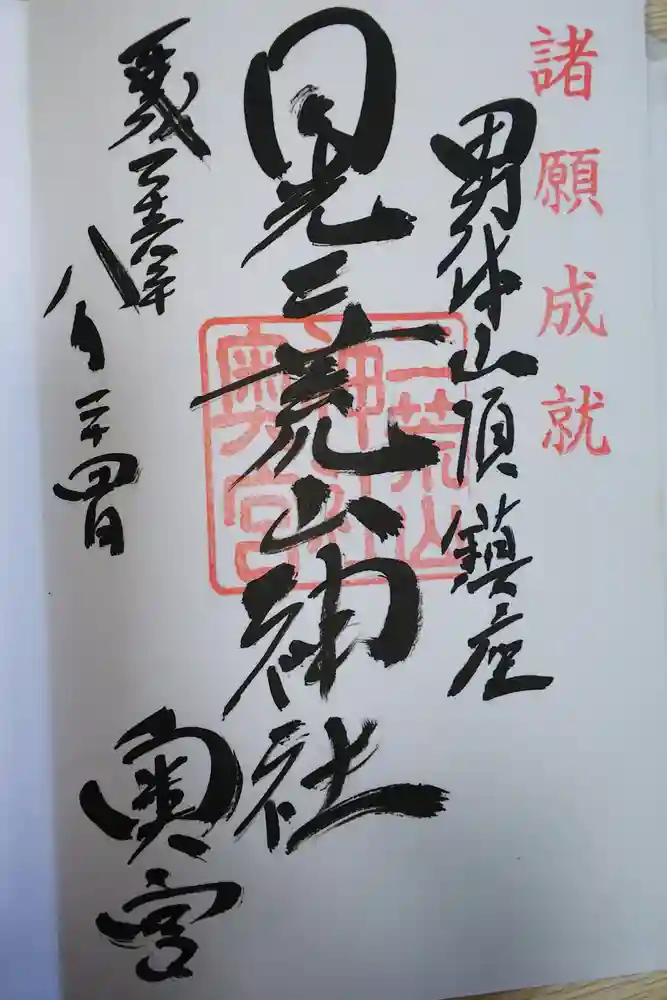 諸願成就
男体山頂鎮座
日光二荒山神社
奥宮
平成二十六年
八月二十四日
二荒山
神社
奥宮